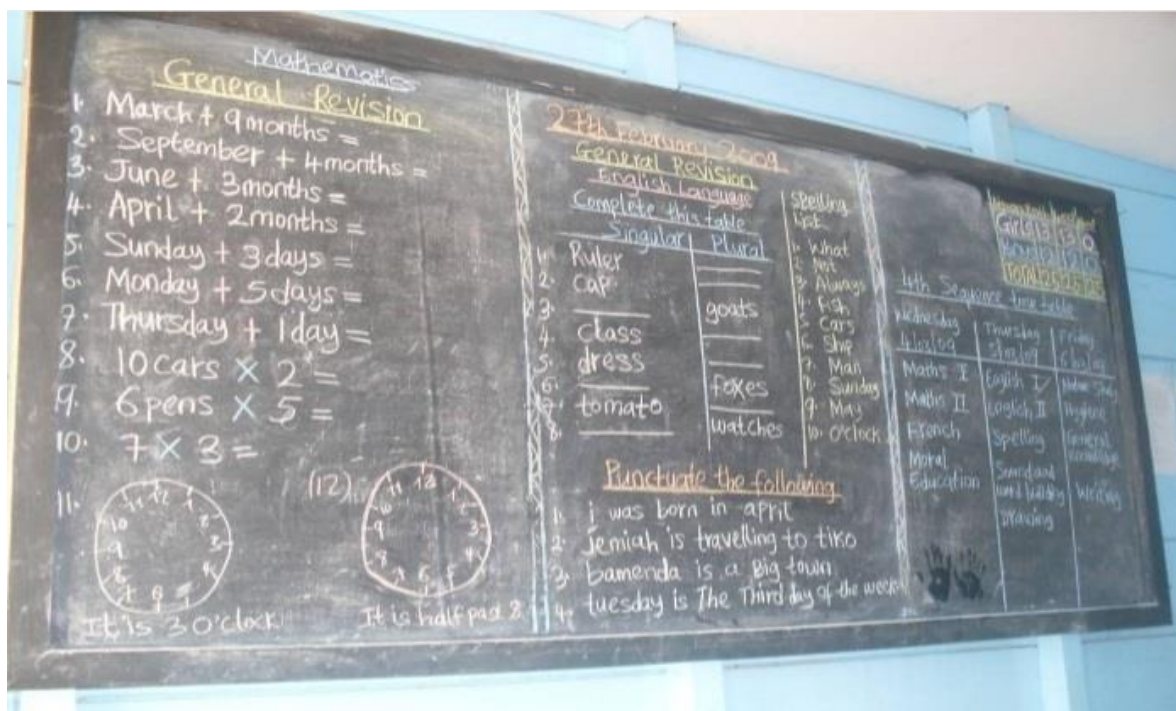 Mathematics
General Revision
1. March + 9 months =
2. September + 4 months =
3. June + 3 months =
4. April + 2 months =
5. Sunday + 3 days =
6. Monday + 5 days =
7. Thursday + 1 day =
8. 10 cars × 2 =
9. 6 pens × 5 =
10. 7 × 3 =
11.
12 1 2 3 4 5 6 7 8 9 10 11
It is 3 O'clock
(12)
12 1 2 3 4 5 6 7 8 9 10 11
It is half past 2
27th February 2009
General Revision
English Language
Complete this table
Singular Plural
1. Ruler
2. cap
3. goats
4. class
5. dress
6. foxes
7. tomato
8. watches
Spelling
List
1. What
2. Not
3. Always
4. Fish
5. Cars
6. She
7. Man
8. Sunday
9. May
10. O'clock
Punctuate the following
1. i was born in april
2. jemiah is travelling to tiko
3. bamenda is a Big town
4. tuesday is The Third day of the week
Girls 13 13 0
Boys 12 12 0
Total 25 25
4th Sequence time table
Wednesday Thursday Friday
4/03/09
Maths I English I Nature Study
Maths II English II Hygiene
French Spelling General knowledge
Moral Education Sound and word building Writing
Drawing